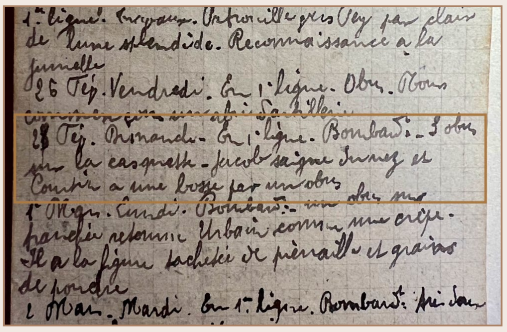 1re ligne. Travaux. Patrouille gris Pey par clair
de lune splendide. Reconnaissance à la
jumelle
26 Fév. Vendredi. En 1e ligne. Obus. Nous
commençons un abri
28 Fév. Dimanche. En 1e ligne. Bombardt. - 3 obus
sur la casquette - Jacob saigne du nez et
a une bosse par un obus
1er Mars. Lundi. Bombardt. - un obus sur
tranchée retourne Urbain comme une crêpe.
Il a la figure tachetée de pierraille et grains
de poudre
2 Mars. Mardi. En 1re ligne. Bombardt. très doux